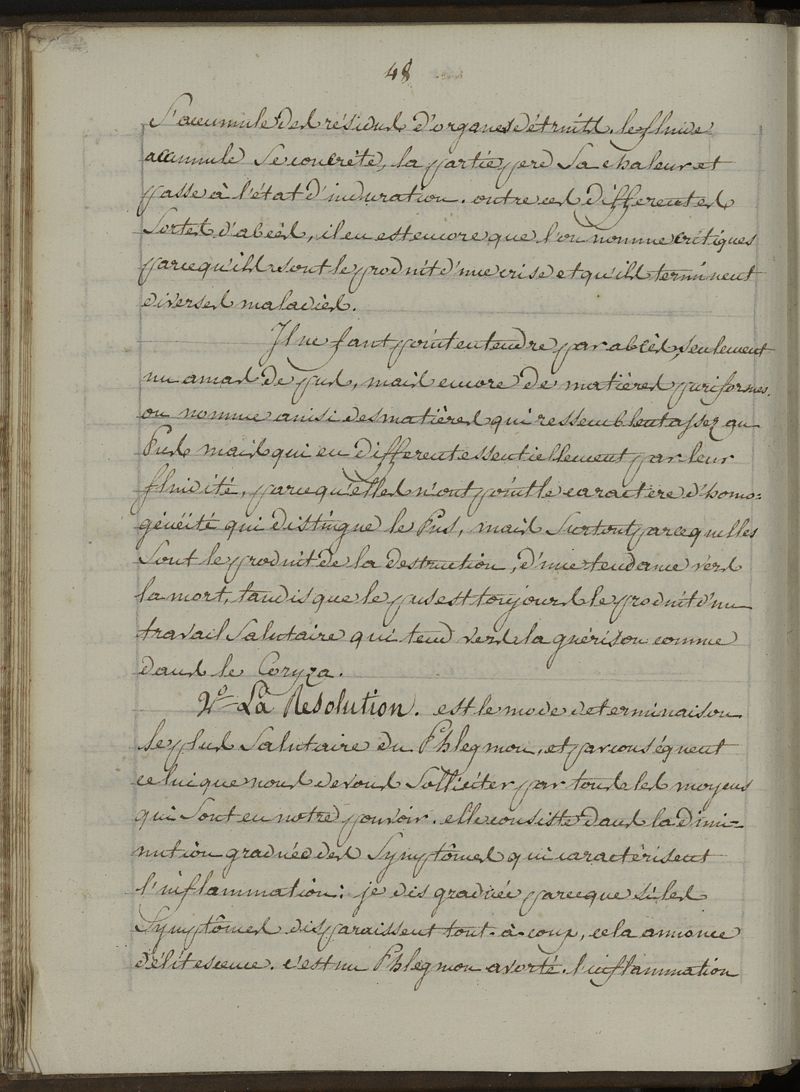 48
S'accumule des résidus d'organes détruits. le fluide
accumulé se concrète, la partie perd Sa chaleur et
passe à l'état d'induration. outre ces differentes
Sortes d'abcès, il en est encore que l'on nomme critiques
parcequ'ils sont le produit d'une crise et qu'ils terminent
diverses maladies.
Il ne faut point entendre par abcès, seulement
un amas de pus, mais encore de matières puriformes.
on nomme ainsi des matières qui ressemblent assez au
Pus mais qui en different essentiellement par leur
fluidité, parcequ'elles n'ont point le caractère d'homo=
généité qui distingue le Pus, mais Surtout parcequ'elles
Sont le produit de la destruction, d'une tendance vers
la mort, tandis que le pus est toujours le produit d'un
travail Salutaire qui tend vers la guérison comme
dans le Coryza.
2º La Resolution. est le mode determinaison
le plus Salutaire du Phlegmon, et par conséquent
celui que nous devons Solliciter par tous les moyens
qui Sont en notre pouvoir. elle consiste dans la dimi=
nution graduée des Symptômes qui caractérisent
l'inflammation: je dis graduée parceque si les
Symptômes disparaissent tout-à-coup, cela annonce
délitescence. c'est un Phlegmon avorté. l'inflammation